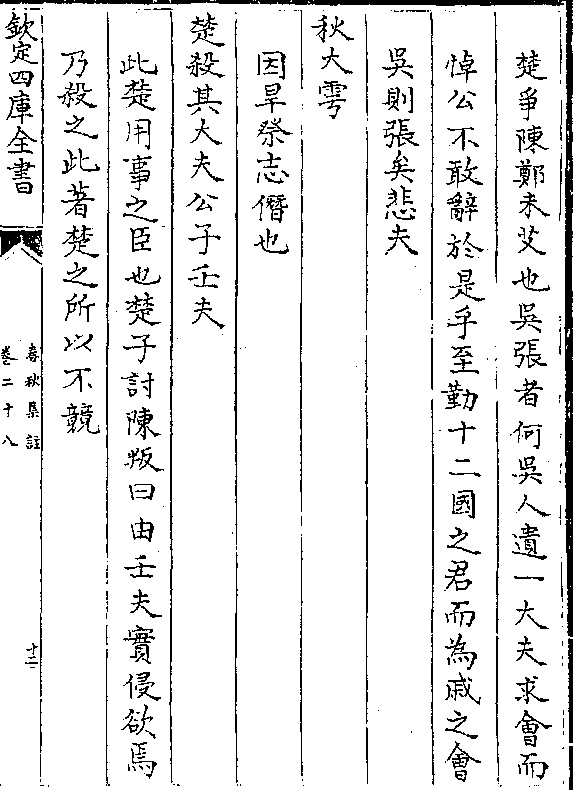 楚爭陳鄭未艾也吳張者何吳人遺一大夫求會而
悼公不敢辭於是乎至勤十二國之君而為戚之會
吳則張矣悲夫
秋大雩
因旱祭志僭也
楚殺其大夫公子壬夫
此楚用事之臣也楚子討陳叛曰由壬夫實侵欲焉
乃殺之此著楚之所以不競
欽定四庫全書
春秋集註
卷二十八
十二